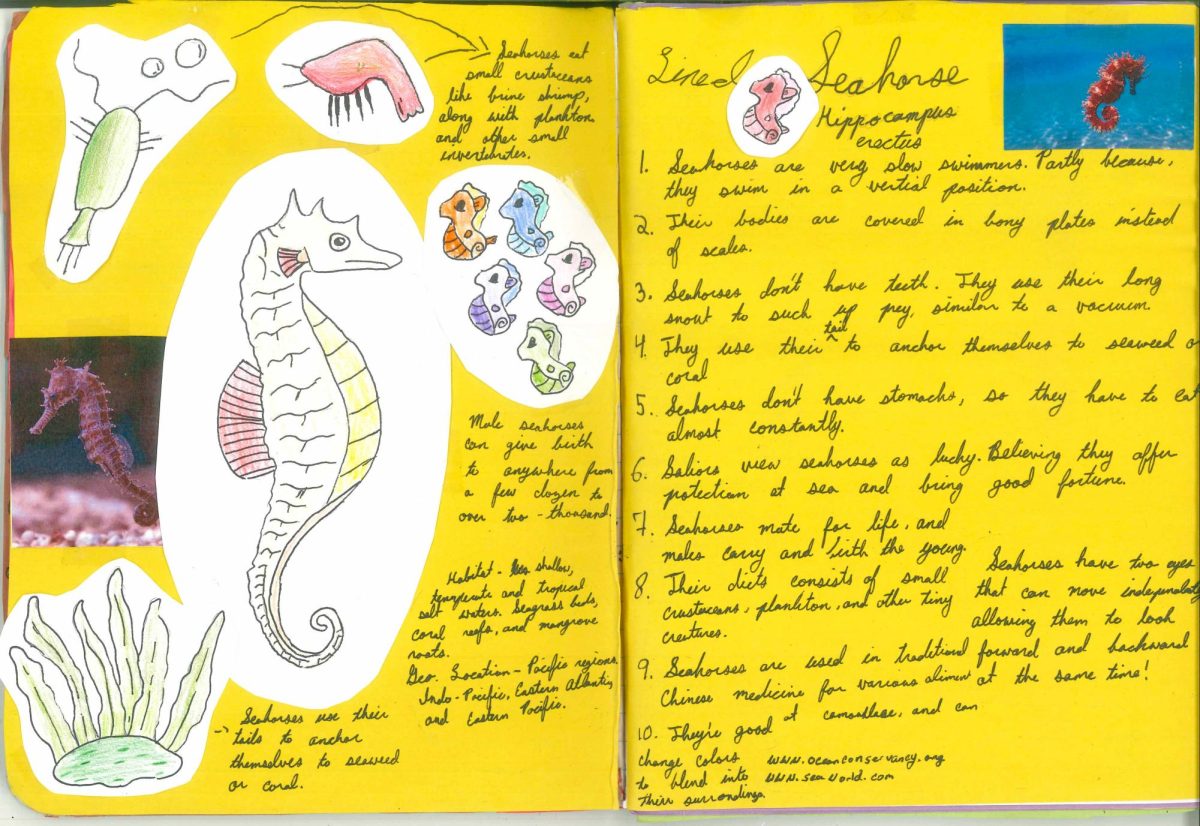 Seahorses eat
small crustaceans
like brine shrimp,
along with plankton
and other small
invertebrates.
Male seahorses
can give birth
to anywhere from
a few dozen to
over two-thousand.
Habitat - shallow,
temperate and tropical
salt waters. Seagrass beds,
coral reefs, and mangrove
roots.
Geo. Location - Pacific regions,
Indo-Pacific, Eastern Atlantic,
and Eastern Pacific.
Seahorses use their
tails to anchor
themselves to seaweed
or coral.
Lined Seahorse
Hippocampus
erectus
1. Seahorses are very slow swimmers. Partly because,
they swim in a vertial position.
2. Their bodies are covered in bony plates instead
of scales.
3. Seahorses don't have teeth. They use their long
snout to such up prey, similar to a vacuum.
4. They use their tail to anchor themselves to seaweed or
coral
5. Seahorses don't have stomachs, so they have to eat
almost constantly.
6. Saliors view seahorses as lucky. Believing they offer
protection at sea and bring good fortune.
7. Seahorses mate for life, and
males carry and birth the young.
8. Their diets consists of small
crustaceans, plankton, and other tiny
creatures.
Seahorses have two eyes
that can move independently
allowing them to look
forward and backward
at the same time!
9. Seahorses are used in traditional
Chinese medicine for various aliment
10. They're good at camouflage, and can
change colors
to blend into
their surrondings.
www.oceanconservancy.org
www.seaworld.com